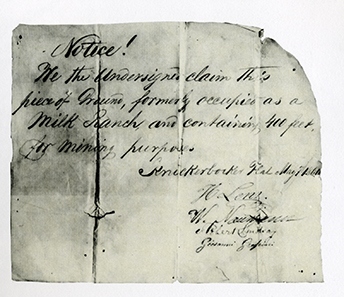 Notice!
We the Undersigned claim this
piece of Ground, formerly occupied as a
Milk Ranch and containing 400 feet,
for mining purposes
Knickerbocker Flat May
H
W.
Lindsay
Giovanni